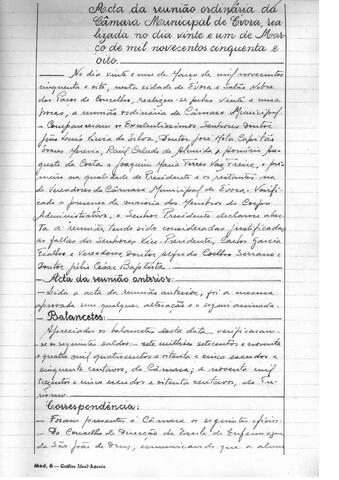 Acta da reunião ordinária da
Câmara Municipal de Évora, rea
lizada no dia vinte e um de Mar
ço de mil novecentos cinquenta e
oito.
No dia vinte e um de Março de mil novecentos
cinquenta e oito, nesta cidade de Évora e Salão Nobre
dos Paços do Concelho, realizou-se pelas vinte e uma
horas, a reunião ordinária da Câmara Municipal.
— Compareceram os Excelentíssimos Senhores Doutor
João Luís Vieira da Silva, Doutor José Mota Capitão
Soares Moreira, Raúl Calado de Almeida e Honório Au
gusto da Costa e Joaquim Maria Torres Vaz Freire, o pri
meiro na qualidade de Presidente e os restantes na
de Vereadores da Câmara Municipal de Évora. Verifi
cada a presença da maioria dos Membros do Corpo
Administrativo, o Senhor Presidente declarou aber
ta a reunião, tendo sido consideradas justificadas
as faltas dos Senhores Vice-Presidente, Carlos Garcia
Fialho e Vereadores, Doutor Alfredo Coelho Serrano e
Doutor Júlio César Baptista.
— Acta da reunião anterior:
— Lida a acta da reunião anterior, foi a mesma
aprovada sem qualquer alteração e a seguir assinada.
— Balancetes:
Apreciados os balancetes desta data verificaram-
se os seguintes saldos: sete milhões setecentos e noventa
e quatro mil quatrocentos e oitenta e cinco escudos e
cinquenta centavos, da Câmara; e noventa mil
trezentos e cinco escudos e oitenta centavos, de Tu-
rismo.
Correspondência:
— Foram presentes à Câmara os seguintes ofícios:
— Do Conselho de Direcção da Escola de Enfermagem
de São João de Deus, comunicando que a aluna
Mod. 6 — Gráfica